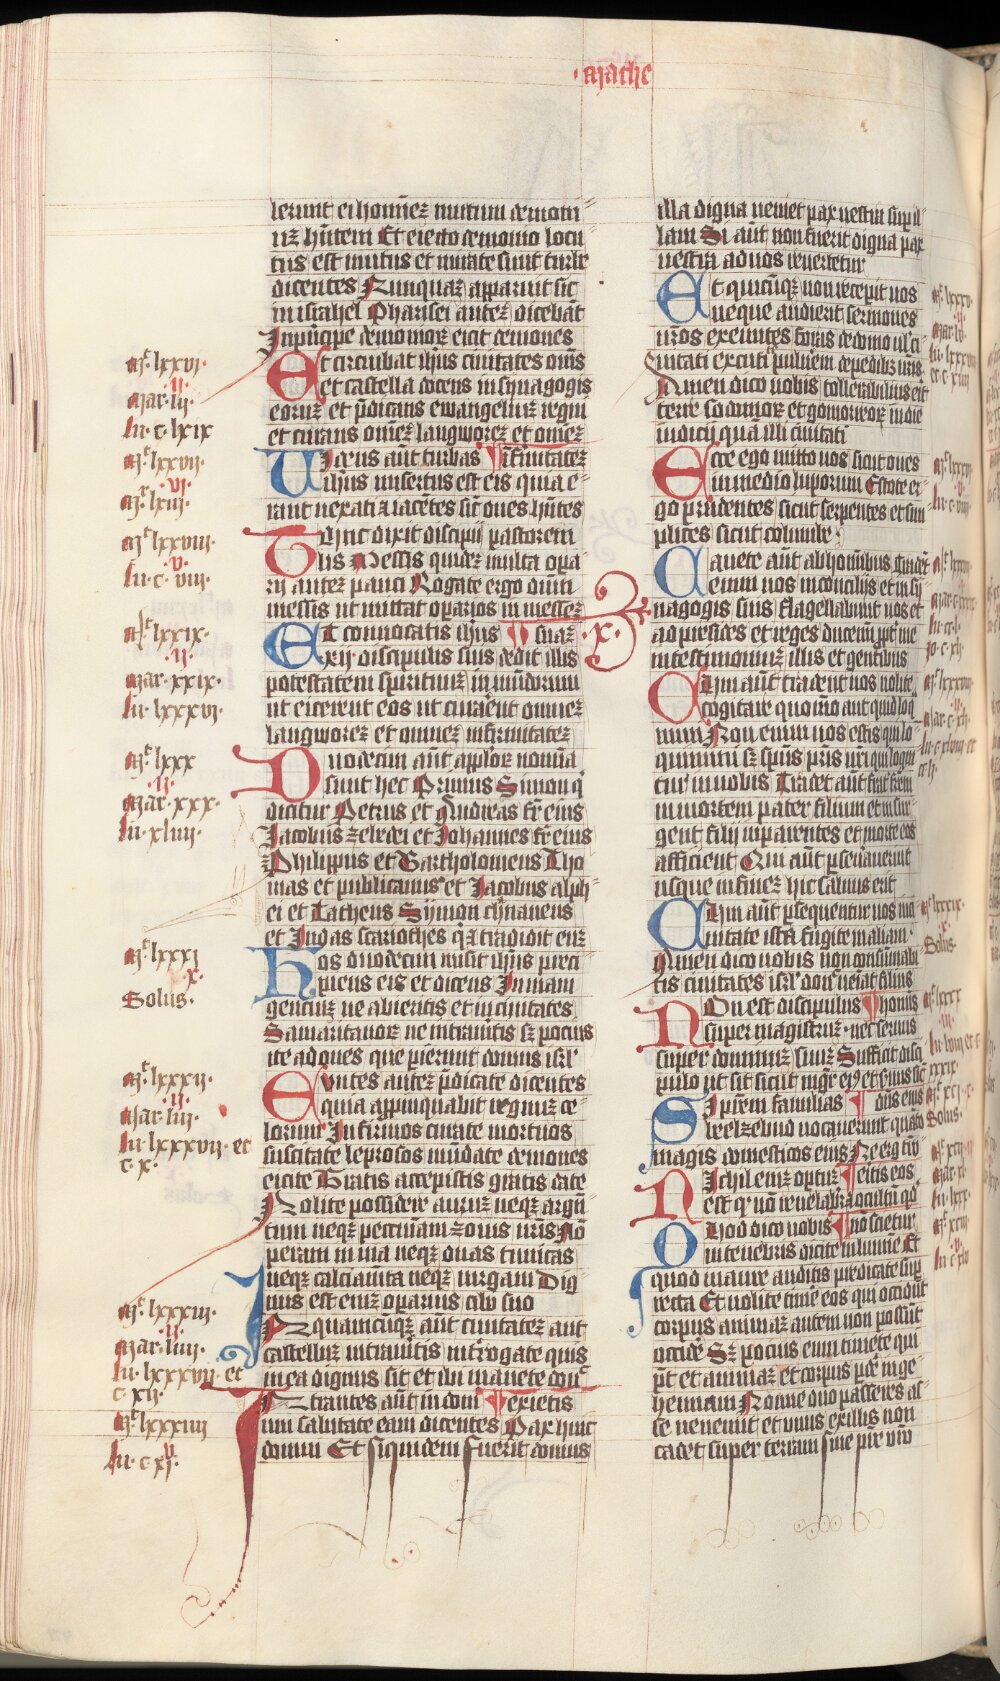 mathe
lerunt ei hominez mutum demoni
uz hñtem Et eiecto demonio locu
tus est mutus et mirate sunt turbe
dicentes Nunquaz apparuit sic
in israhel Pharisei autez dicebãt
In pñcipe demonioꝝ eicit demones
Et circuibat ihus ciuitates oms
et castella docens in synagogis
eoruz et p̃dicans ewangeliuz regni
et curans omēz langworez et omēz
Uidens aũt turbas ¶ ĩfirmitatez
ihus misertus est eis quia e
rant uexati ⁊ iacẽtes sic̃ oues hñtes
Tunc dixit discipĩs pastorem
suis Messis quidez multa opa
rij autez pauci Rogate ergo dñm
messis ut mittat oparios in messez
Et conuocatis ihus ¶ suaz ·x·
xij· discipulis suis dedit illis
potestatem spirituuz in mũdorum
ut eicerent eos ut curarẽt omnez
langworez et omnez infirmitatez
Duodecim aũt applõꝝ nomĩa
sunt hec Primus Simon q̃
dicitur Petrus et Andreas fr̃ eius
Jacobus zebedei et Johannes fr̃ eius
Philippus et Bartholomeus Tho
mas et publicanus et Jacobus alph
ei et Tatheus Symon chananeus
et Judas scariothes q̃ ⁊ tradidit euz
Hos duodecim misit ihus preci
piens eis et dicens In uiam
genciuz ne abieritis et in ciuitates
Samaritanoꝝ ne intraueritis sz pocius
ite ad oues que pierunt domus isrl
Euntes autez p̃dicate dicentes
quia appinquabit regnuz ce
lorum Infirmos curate mortuos
suscitate leprosos mũdate demones
eicite Gratis accepistis gratis date
Nolite possidere auruz neqz argñ
tum neqz pecuniam zonis uris Nõ
peram in uia neqz duas tunicas
neqz calciamta neqz uirgam Dig
nus est eniz operarius cibo suo
In quamcũqz aũt ciuitatez aut
castelluz intraueritis interrogate quis
in ea dignus sit et ibi manete donc̃
Intrantes aũt in dom̃ ¶ exeatis
um salutate eam dicentes Pax huic
domui Et siquidem fuerit domus
illa digna ueniet pax uestra sup il
lam Si aũt non fuerit digna pax
uestra ad uos reuertetur
Et quicũqz non recepit uos
neque audierit sermones
uros exeuntes foras de domo ul ci
uitati excutite puluerem de pedibz uris
Amen dico uobis tollerabilius erit
terre sodomoꝝ et gomorreoꝝ in die
iudicij quã illi ciuitati
Ecce ego mitto uos sicut oues
in medio luporum Estote er
go prudentes sicut serpentes et sim
plices sicut columbe
Cauete aũt ab hominibus tradẽt
enim uos in concilijs et in sy
nagogis suis flagellabunt uos et
ad presides et reges ducemĩ ppt̃ me
in testimoniuz illis et gentibus
Cum aũt tradent uos nolite
cogitare quomõ aut quid loq̃
mini Non enim uos estis qui lo
quimini sz spũs pr̃is uri qui loquit̃
tur in uobis Tradet aũt frat̃ frem
in mortem pater filium et insur
gent filij in parentes et morte eos
afficient Qui aũt pseuerauerit
usque in finez hic saluus erit
Cum aũt psequentur uos in ci
uitate ista fugite in aliam·
Amen dico uobis non consumabi
tis ciuitates isrl donc̃ ueniat filius
Non est discipulus ¶ homis
super magistruz nec seruus
super dominuz suuz Sufficit disci
pulo ut sit sicut mgr̃ eiꝰ et seruus sic̃
Si pr̃em familias ¶ dñs eius
beelzebub uocauerunt quãto
magis domesticos eius Ne ergo tiĩ
Nichil eniz optuz ¶ ueritis eos
est q̃ nõ reuelabit̃ ⁊ ocultũ qd̃
Quod dico uobis ¶ nõ scietur
in tenebris dicite in lumĩe Et
quod in aure auditis predicate sup
tecta Et nolite timẽ eos qui occidũt
corpus animaz autem non possũt
occidẽ Sz pocius eum timete qui
pt̃ et animaz et corpus pdẽ in ge
hennam Nonne duo passeres as
se ueneunt et unus ex illis non
cadet super terram sine pr̃e uro
Mt̃ lxxvi·
ii·
Mar· lii·
lu· c· lxix
Mt̃ lxxvii·
vi·
Mr̃ lxiii·
Mt̃ lxxviii·
v·
lu· c· viii·
Mt̃ lxxix·
ii·
Mar· xxix·
lu· lxxxvi·
Mt̃ lxxx
ii·
Mar· xxx·
lu· xliiii·
Mt̃ lxxxi
x·
Solus·
Mt̃ lxxxii·
ii·
Mar· liii·
lu· lxxxvii· et
c· x·
Mt̃ lxxxiii·
ii·
Mar· liiii·
lu· lxxxvii· et
c· xii·
Mt̃ lxxxiiii
v·
lu· c· xi·